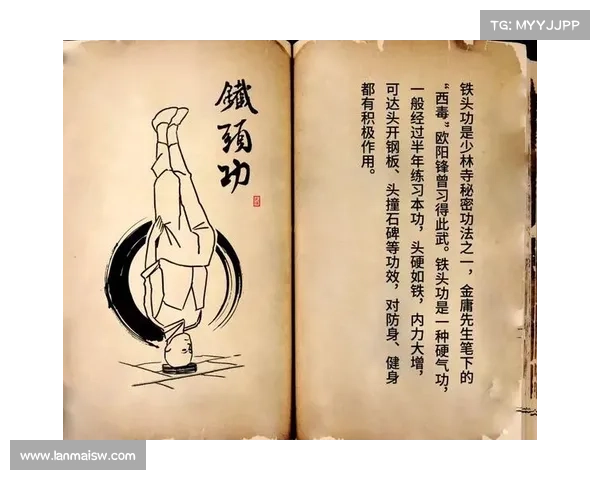 TG: MYYJJPP
鐵頭功
铁头功是少林寺秘密功法之一，金庸先生笔下的
“西毒”欧阳锋曾习得此武。铁头功是一种硬气功，
一般经过半年练习本功，头硬如铁，内力大增，
可达头开钢板、头撞石碑等功效，对防身、健身
都有积极作用。
www.lanmaisw.com